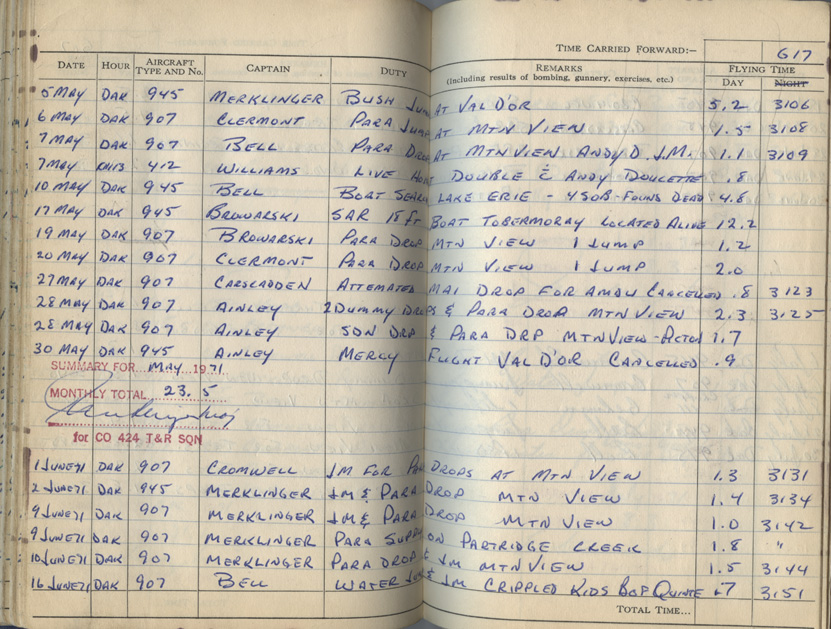 TIME CARRIED FORWARD:- 617
DATE HOUR AIRCRAFT TYPE AND No. CAPTAIN DUTY REMARKS (including results of bombing, gunnery, exercises, etc.) FLYING TIME DAY NIGHT
5 MAY DAK 945 MERKLINGER BUSH JUMP AT VAL D'OR 5.2 3106
6 MAY DAK 907 CLERMONT PARA JUMP AT MTN VIEW 1.5 3108
7 MAY DAK 907 BELL PARA DROP AT MTN VIEW ANDY D. JM. 1.1 3109
7 MAY 412 WILLIAMS LIVE DOUBLE C̄ ANDY DOUCETTE .8
10 MAY DAK 945 BELL BOAT SEARCH LAKE ERIE - 4 SOB-FOUND DEAD 4.8
17 MAY DAK 945 BROWARSKI SAR 18 ft BOAT TOBERMORAY LOCATED ALIVE 12.2
19 MAY DAK 907 BROWARSKI PARA DROP MTN VIEW 1 JUMP 1.2
20 MAY DAK 907 CLERMONT PARA DROP MTN VIEW 1 JUMP 2.0
27 MAY DAK 907 CARSCADDEN ATTEMATED MAI DROP FOR AMDU CANCELLED .8 3123
28 MAY DAK 907 AINLEY 2 DUMMY DROPS & PARA DROP MTN VIEW 2.3 3125
28 MAY DAK 907 AINLEY DRP & PARA DRP MTN VIEW - 1.7
30 MAY DAK 945 AINLEY MERCY FLIGHT VAL D'OR CANCELLED .9
SUMMARY FOR... MAY 1971
MONTHLY TOTAL 23.5
for CO 424 T&R SQN
1 JUNE 71 DAK 907 CROMWELL JM FOR PARA DROPS AT MTN VIEW 1.3 3131
2 JUNE 71 DAK 945 MERKLINGER JM & PARA DROP MTN VIEW 1.4 3134
9 JUNE 71 DAK 907 MERKLINGER JM & PARA DROP MTN VIEW 1.0 3142
9 JUNE 71 DAK 907 MERKLINGER PARA SUPPLY ON PARTRIDGE CREEK 1.8 "
10 JUNE 71 DAK 907 MERKLINGER PARA DROP & JM MTN VIEW 1.5 3144
16 JUNE 71 DAK 907 BELL WATER JUMP & JM CRIPPLED KIDS B OF QUINTE .7 3151
TOTAL TIME...